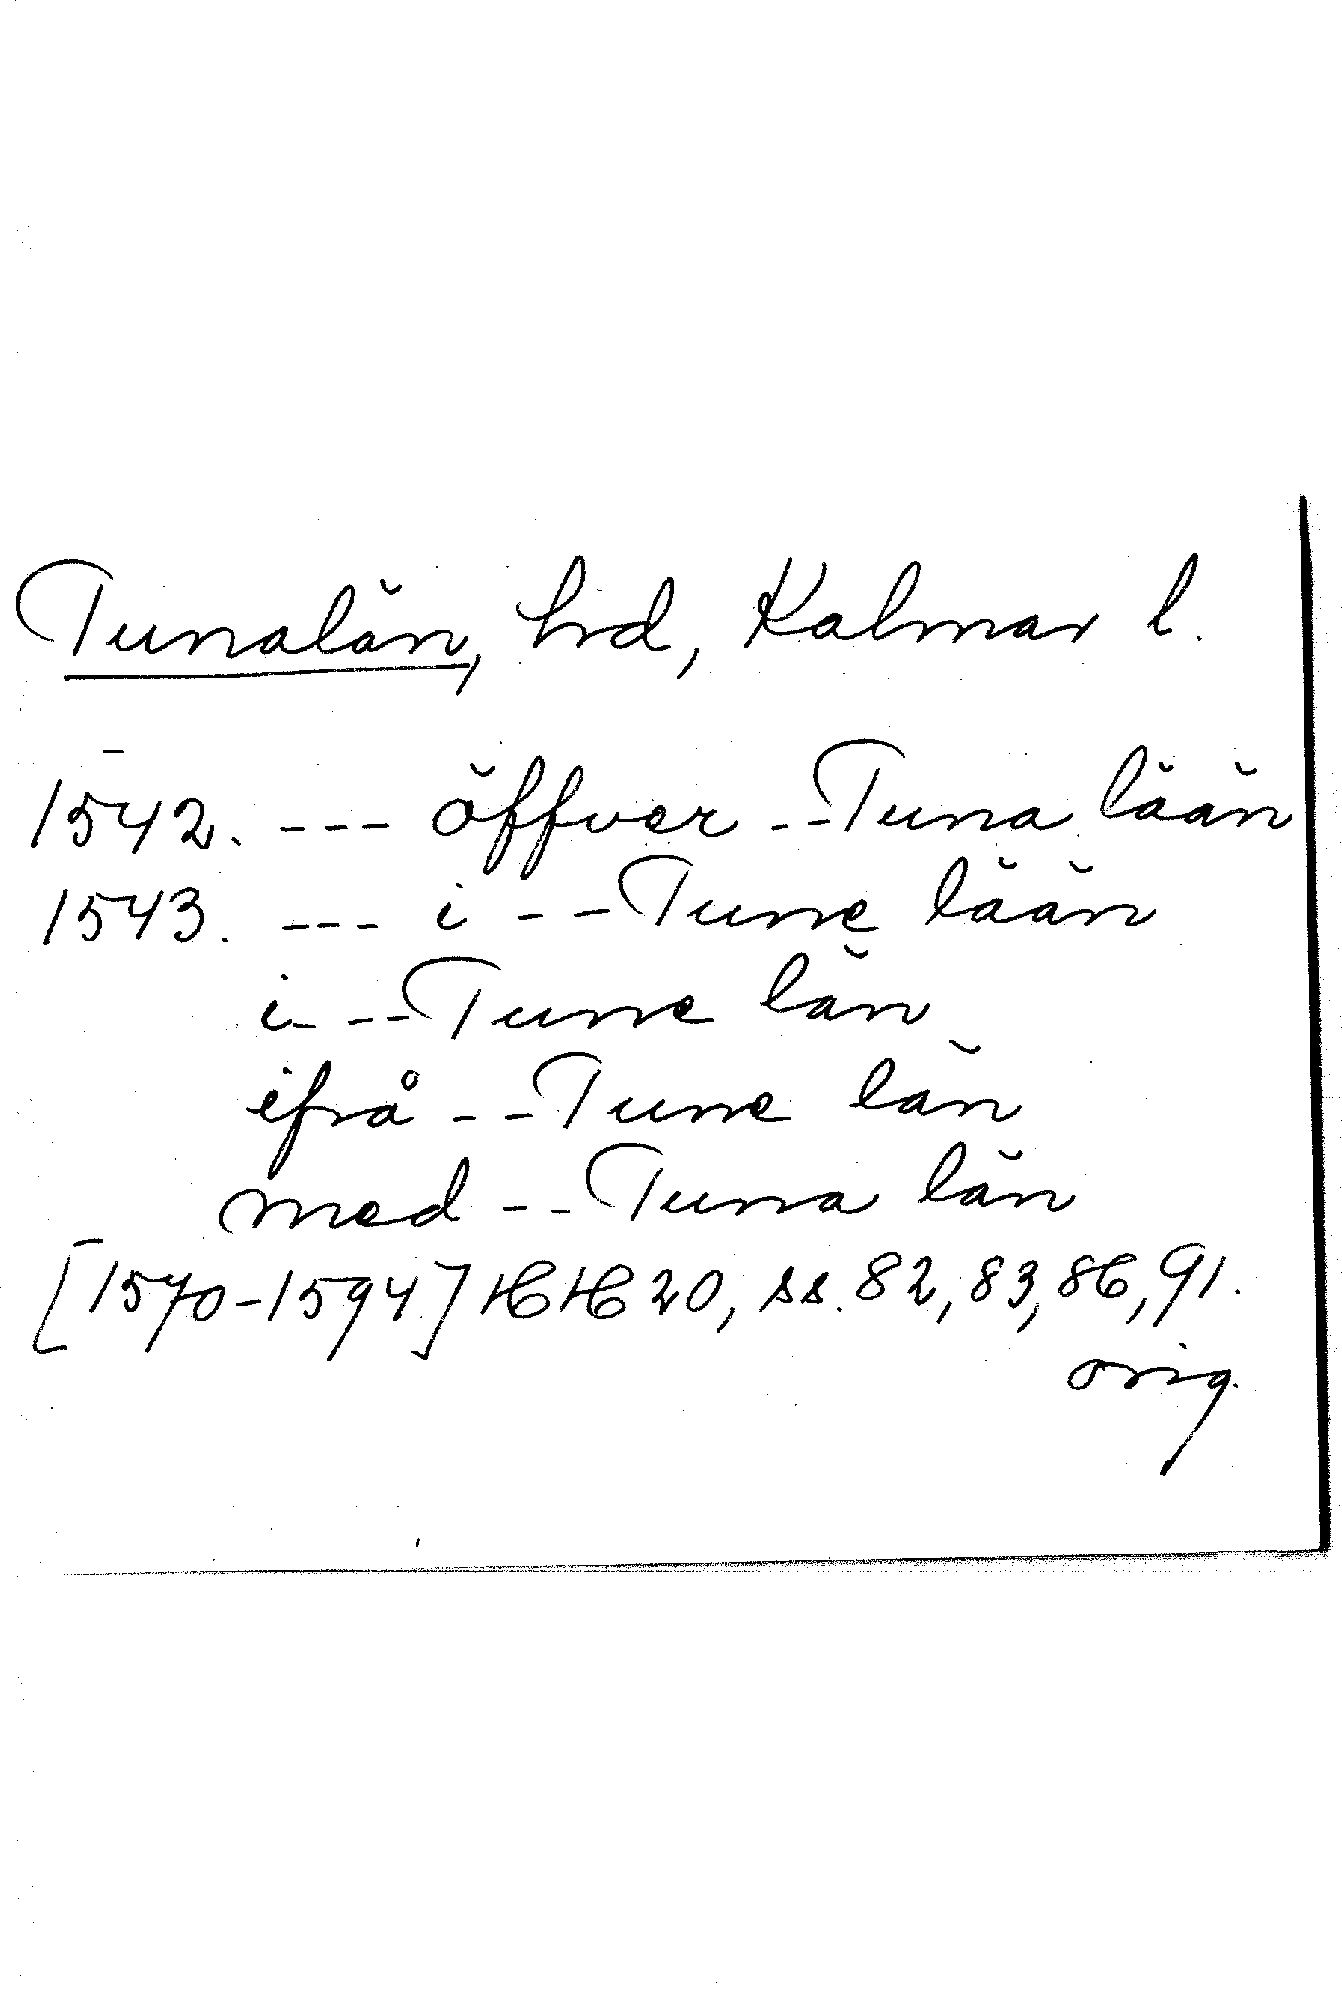 Tunalän, hd, Kalmar l.
1542. --- öffver -- Tuna lään
1543. --- i -- Tune lään
i --- Tune län
ifrå -- Tune län
med -- Tuna län
[1570-1594] HH 20, ss. 82, 83, 86, 91.
orig.